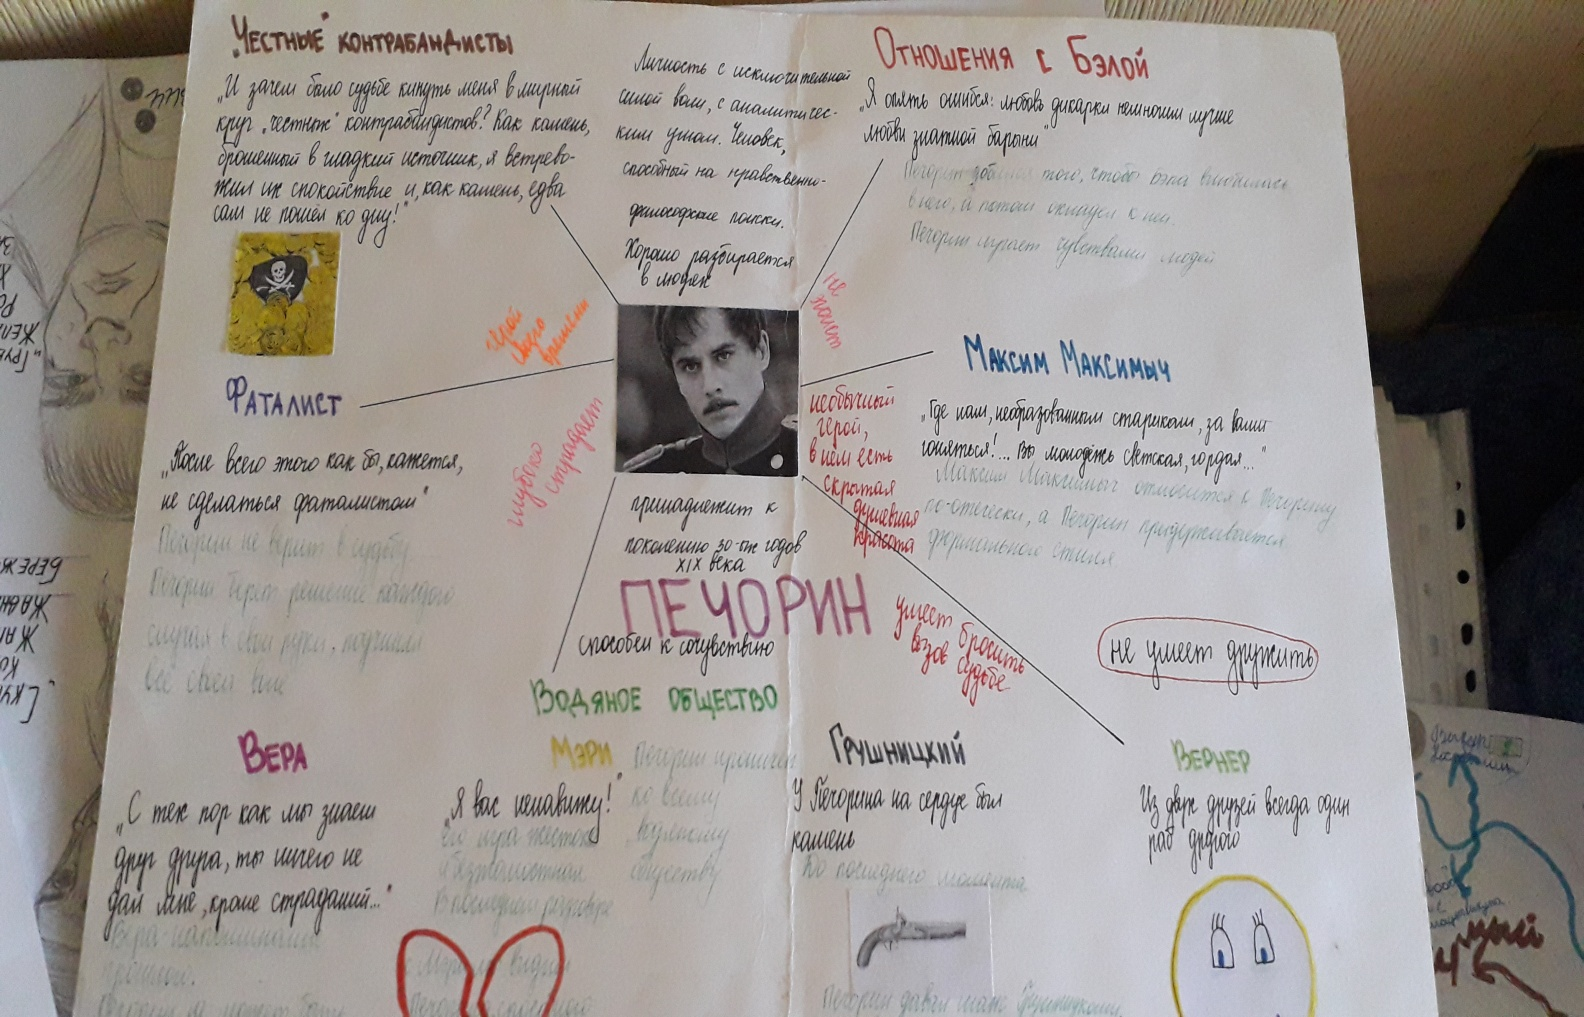 "Честные" контрабандисты
"И зачем было судьбе кинуть меня в мирный
круг "честных" контрабандистов? Как камень,
брошенный в гладкий источник, я встрево-
жил их спокойствие и, как камень, едва
сам не пошёл ко дну!"
Личность с исключительной
силой воли, с аналитичес-
ким умом. Человек,
способный на нравственно-
философские поиски.
Хорошо разбирается
в людях
Отношения с Бэлой
"Я опять ошибся: любовь дикарки немногим лучше
любви знатной барыни"
Печорин добился того, чтобы Бэла влюбилась
в него, а потом охладел к ней.
Печорин играет чувствами людей
герой
своего
времени
не
понят
Фаталист
"После всего этого как бы, кажется,
не сделаться фаталистом"
Печорин не верит в судьбу.
Печорин берет решение каждого
случая в свои руки, подчиняя
всё своей воле
глубоко
страдает
необычный
герой,
в нём есть
скрытая
душевная
красота
Максим Максимыч
"Где нам, необразованным старикам, за вами
гоняться!... Вы молодежь светская, гордая..."
Максим Максимыч относится к Печорину
по-отечески, а Печорин придерживается
формального стиля.
принадлежит к
поколению 30-ых годов
XIX века
ПЕЧОРИН
способен к сочувствию
умеет бросить
вызов судьбе
не умеет дружить
Водяное общество
Вера
"С тех пор как мы знаем
друг друга, ты ничего не
дал мне, кроме страданий..."
Вера-напоминание
прошлого.
Мэри
"Я вас ненавижу!"
Его игра жестока
и безжалостная
В последнем разговоре
с Мэри мы видим
Печорин
ко всему
водяному
обществу
Грушницкий
У Печорина на сердце был
камень
До последнего момента
Печорин давал шанс Грушницкому
Вернер
Из двух друзей всегда один
раб другого